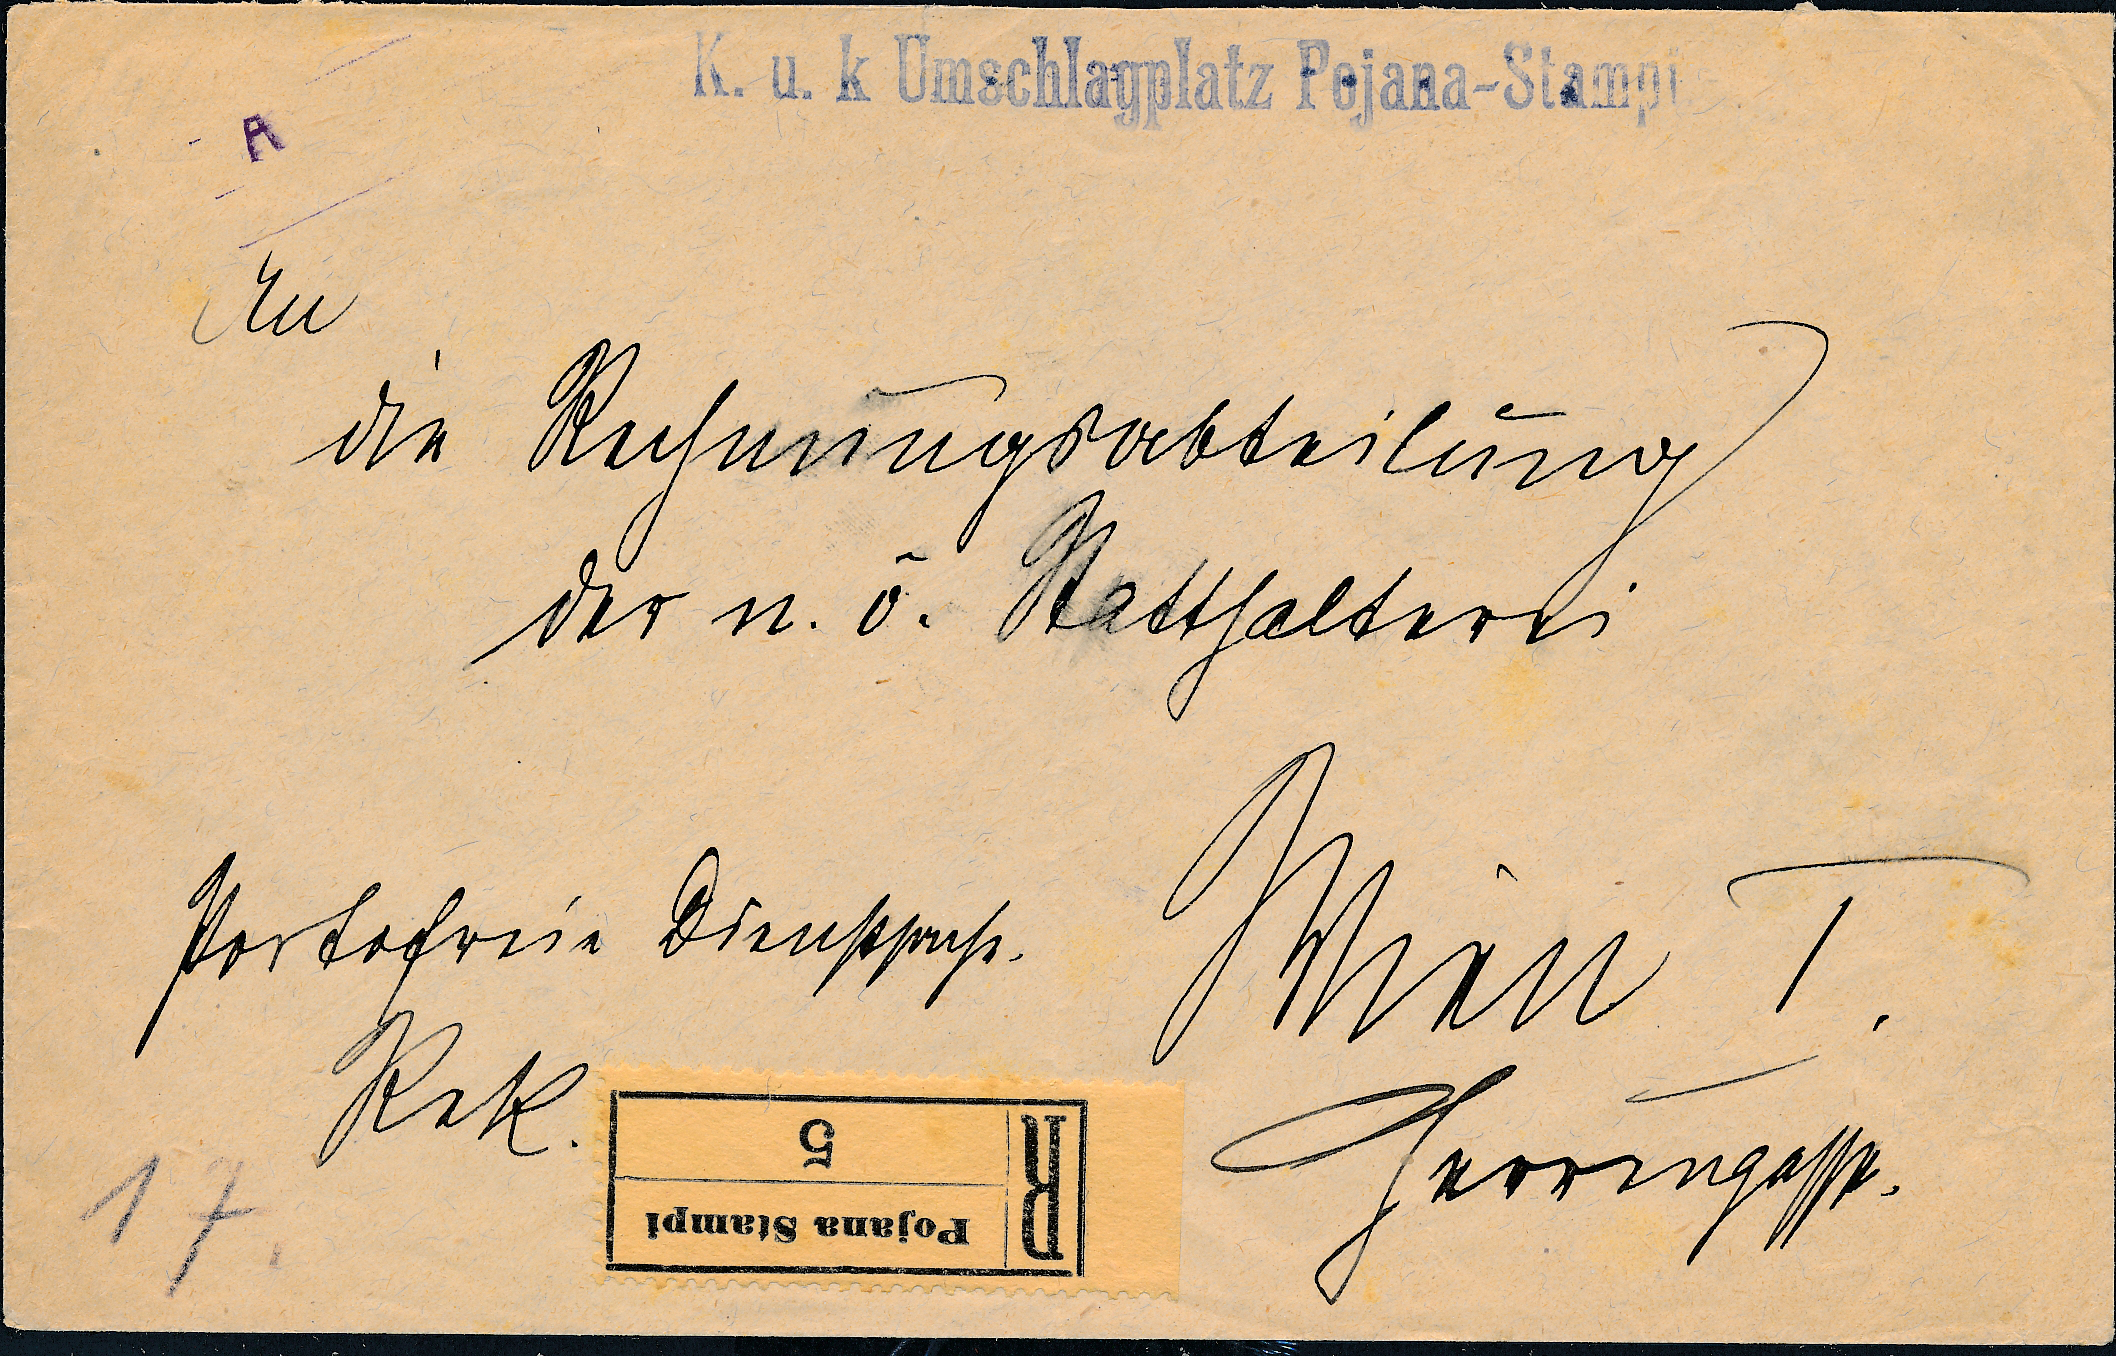 K. u. k Umschlagplatz Pojana-Stampi
R
An
die Rechnungsabteilung
der n. ö. Statthalterei
Wien I.
Herrengasse.
Portofreie Dienstsache.
Rek.
R
5
Pojana Stampi
17.